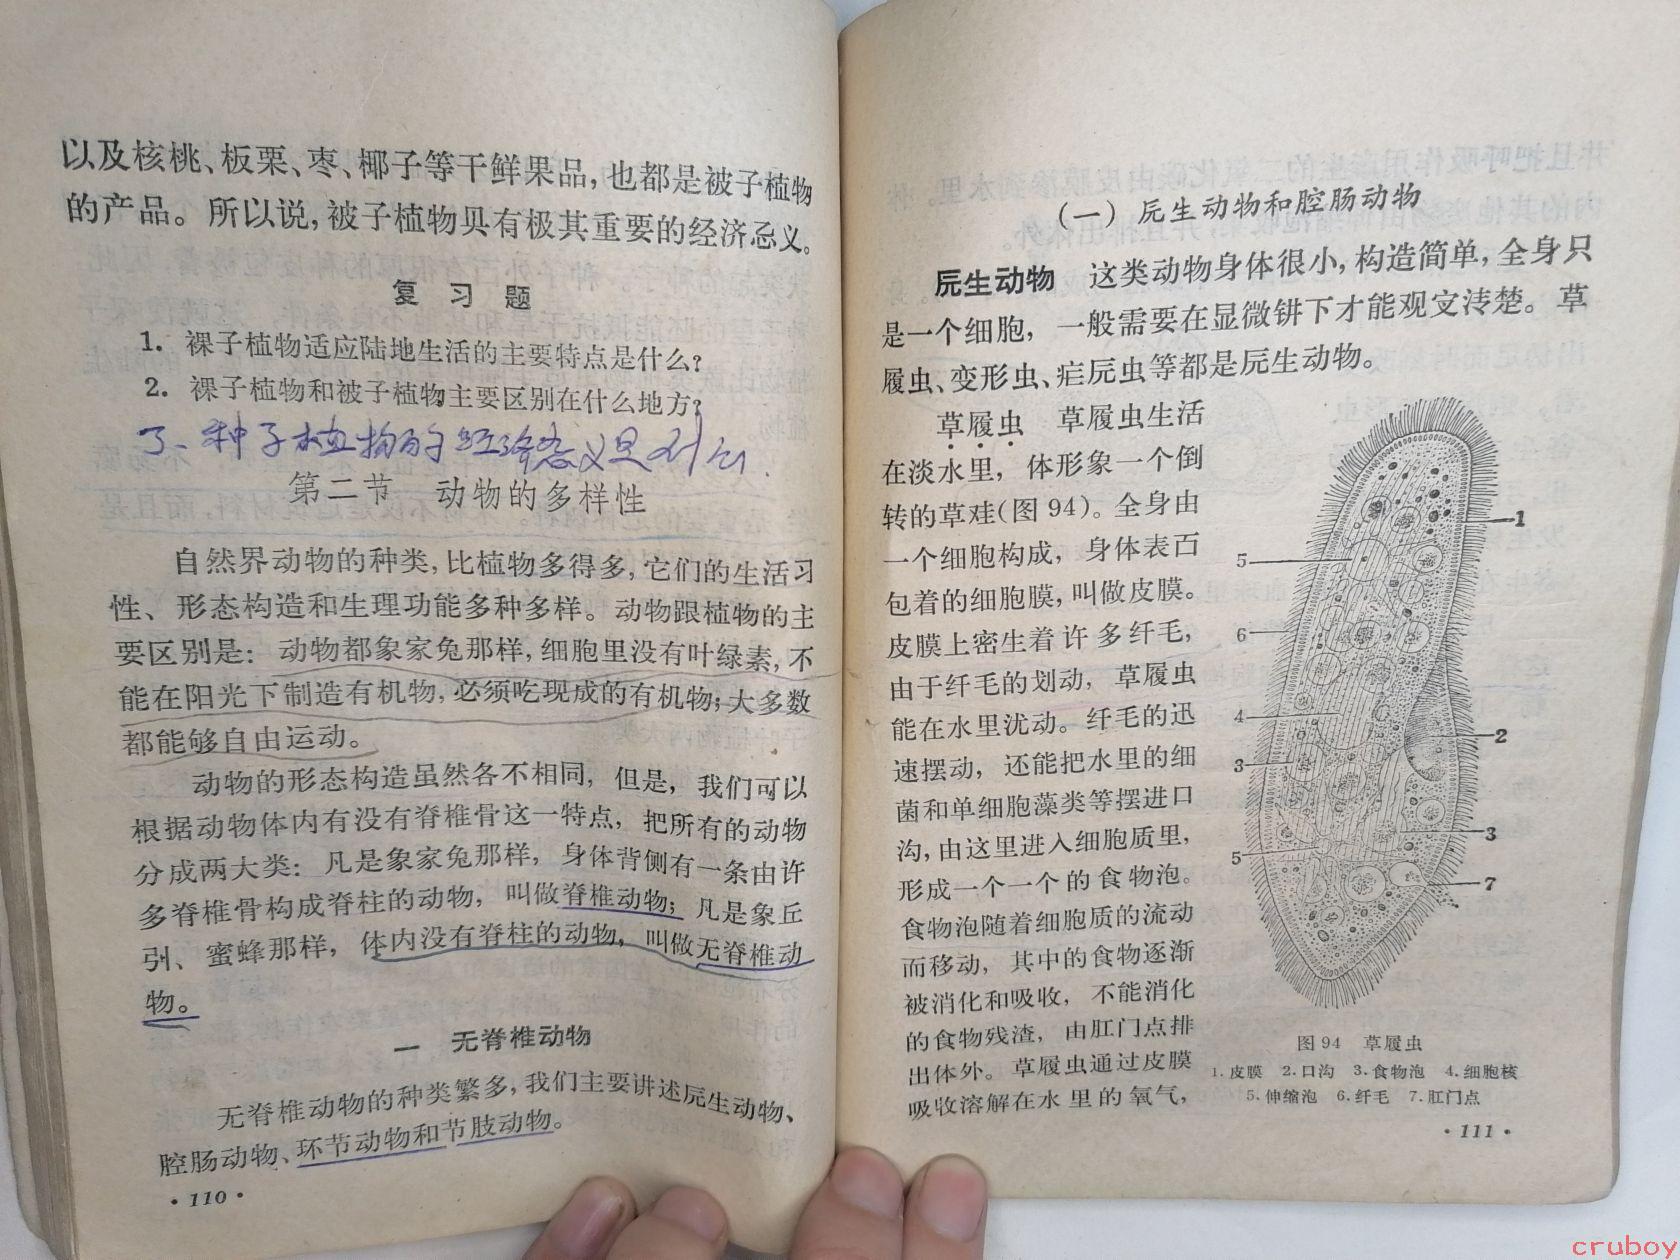 以及核桃、板栗、枣、椰子等干鲜果品，也都是被子植物
的产品。所以说，被子植物具有极其重要的经济意义。
复 习 题
1. 裸子植物适应陆地生活的主要特点是什么？
2. 裸子植物和被子植物主要区别在什么地方？
了、种子植物的经济意义是什么.
第二节 动物的多样性
自然界动物的种类，比植物多得多，它们的生活习
性、形态构造和生理功能多种多样。动物跟植物的主
要区别是：动物都象家兔那样，细胞里没有叶绿素，不
能在阳光下制造有机物，必须吃现成的有机物；大多数
都能够自由运动。
动物的形态构造虽然各不相同，但是，我们可以
根据动物体内有没有脊椎骨这一特点，把所有的动物
分成两大类：凡是象家兔那样，身体背侧有一条由许
多脊椎骨构成脊柱的动物，叫做脊椎动物；凡是象丘
引、蜜蜂那样，体内没有脊柱的动物，叫做无脊椎动
物。
一 无脊椎动物
无脊椎动物的种类繁多，我们主要讲述原生动物、
腔肠动物、环节动物和节肢动物。
·110·
（一）原生动物和腔肠动物
原生动物 这类动物身体很小，构造简单，全身只
是一个细胞，一般需要在显微镜下才能观察清楚。草
履虫、变形虫、疟原虫等都是原生动物。
草履虫 草履虫生活
在淡水里，体形象一个倒
转的草鞋（图94）。全身由
一个细胞构成，身体表面
包着的细胞膜，叫做皮膜。
皮膜上密生着许多纤毛，
由于纤毛的划动，草履虫
能在水里游动。纤毛的迅
速摆动，还能把水里的细
菌和单细胞藻类等摆进口
沟，由这里进入细胞质里，
形成一个一个的食物泡。
食物泡随着细胞质的流动
而移动，其中的食物逐渐
被消化和吸收，不能消化
的食物残渣，由肛门点排
出体外。草履虫通过皮膜
吸收溶解在水里的氧气，
1
5
6
4
2
3
3
5
7
图94 草履虫
1.皮膜 2.口沟 3.食物泡 4.细胞核
5.伸缩泡 6.纤毛 7.肛门点
·111·
cruboy